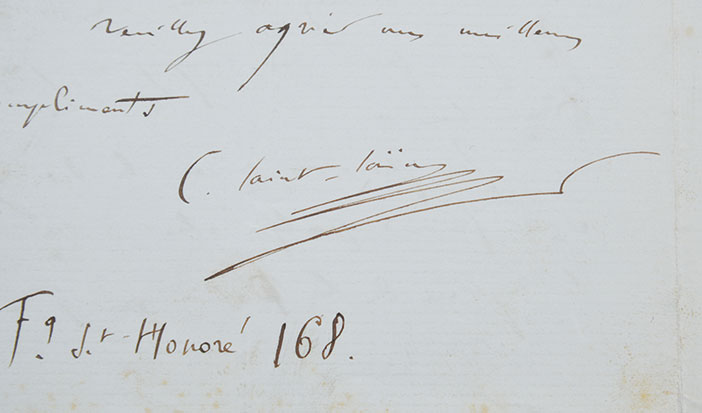 veuillez agréer mes meilleurs
mpliments
C. Saint-Saëns
Fg St-Honoré 168.